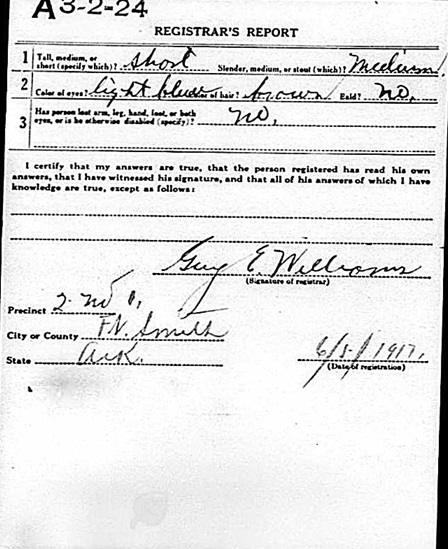 A3-2-24
REGISTRAR'S REPORT
1 Tall, medium, or short (specify which)? short Slender, medium, or stout (which)? Medium
2 Color of eyes? light blue Color of hair? brown Bald? no,
3 Has person lost arm, leg, hand, foot, or both eyes, or is he otherwise disabled (specify)? no.
I certify that my answers are true, that the person registered has read his own
answers, that I have witnessed his signature, and that all of his answers of which I have
knowledge are true, except as follows:
Guy E. Williams
(Signature of registrar)
Precinct 2-nd
City or County Ft. Smith
State Ark. 6/5/1917.
(Date of registration)